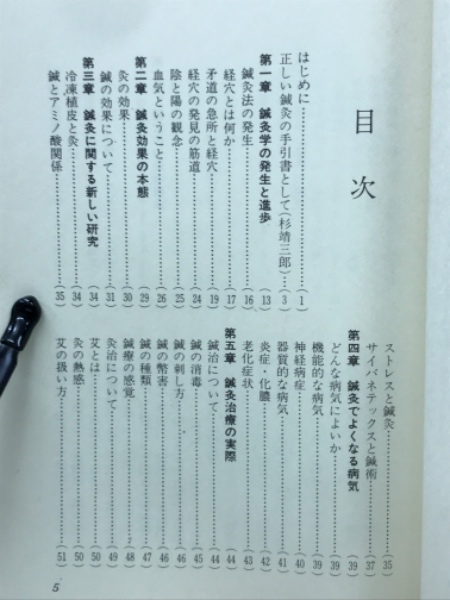 目次
はじめに……(1)
正しい鍼灸の手引書として(杉靖三郎)……(3)
第一章 鍼灸学の発生と進歩……(13)
鍼灸法の発生……(16)
経穴とは何か……(17)
矛道の急所と経穴……(19)
経穴の発見の筋道……(24)
陰と陽の観念……(25)
血気ということ……(26)
第二章 鍼灸効果の本態……(29)
灸の効果……(30)
鍼の効果について……(31)
第三章 鍼灸に関する新しい研究……(34)
冷凍植皮と灸……(34)
鍼とアミノ酸関係……(35)
ストレスと鍼灸……(35)
サイバネテックスと鍼術……(37)
第四章 鍼灸でよくなる病気……(39)
どんな病気によいか……(39)
機能的な病気……(39)
神経病症……(40)
器質的な病気……(41)
炎症・化膿……(42)
老化症状……(43)
第五章 鍼灸治療の実際……(44)
鍼治について……(44)
鍼の消毒……(45)
鍼の刺し方……(46)
鍼の弊害……(46)
鍼の種類……(47)
鍼療の感覚……(48)
灸治について……(49)
艾とは……(50)
灸の熱感……(50)
艾の扱い方……(51)
5